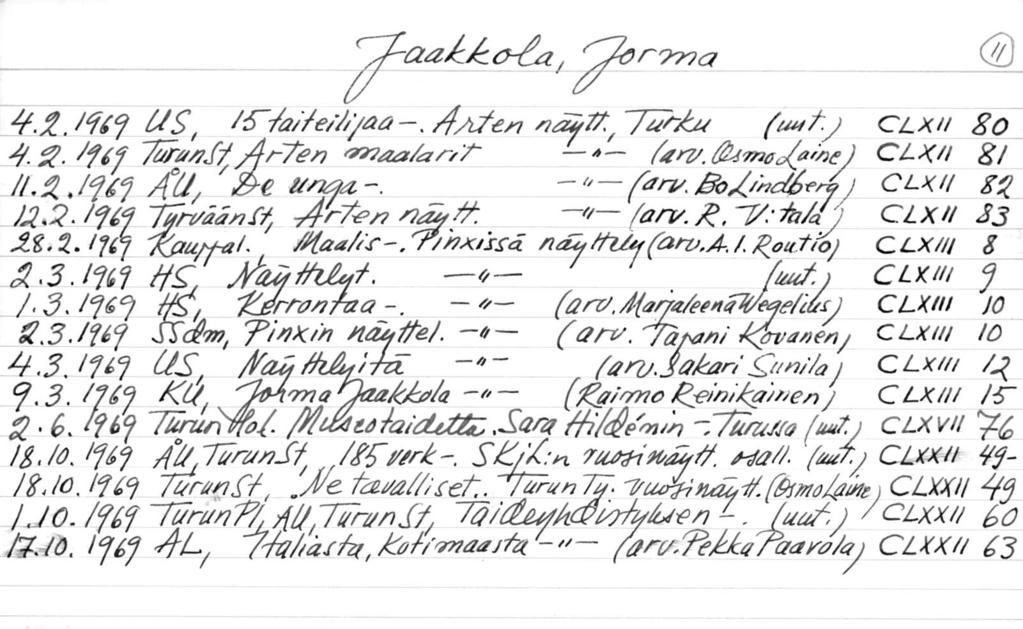 Jaakkola, Jorma 11
4.2.1969 US, 15 taiteilijaa-. Arten näytt., Turku (uut.) CLXII 80
4.2.1969 TurunSt, Arten maalarit —"— (arv. Osmo Laine) CLXII 81
11.2.1969 ÅU, De unga-. —"— (arv. Bo Lindberg) CLXII 82
12.2.1969 TyrväänSt, Arten näytt. —"— (arv. R. V:tala) CLXII 83
28.2.1969 Kauppal. Maalis-. Pinxissä näyttely (arv. A.I. Routio) CLXIII 8
2.3.1969 HS, Näyttelyt. —"— (uut.) CLXIII 9
1.3.1969 HS, Kerrontaa-. —"— (arv. Marjaleena Wegelius) CLXIII 10
2.3.1969 SSdm, Pinxin näyttel. —"— (arv. Tapani Kovanen) CLXIII 10
4.3.1969 US, Näyttelyitä —"— (arv. Sakari Sunila) CLXIII 12
9.3.1969 KU, Jorma Jaakkola —"— (Raimo Reinikainen) CLXIII 15
2.6.1969 Turun Museotaidetta. Sara Hildénin -. Turussa (uut.) CLXVII 76
18.10.1969 ÅU, TurunSt, 185 verk-. SKjL:n vuosinäytt. osall. (uut.) CLXXII 49-
18.10.1969 TurunSt, Ne tavalliset.. Turun Ty. vuosinäytt. (Osmo Laine) CLXXII 49
1.10.1969 TurunPl, ÅU, TurunSt, Taideyhdistyksen -. (uut.) CLXXII 60
17.10.1969 AL, Italiasta, Kotimaasta —"— (arv. Pekka Paavola) CLXXII 63